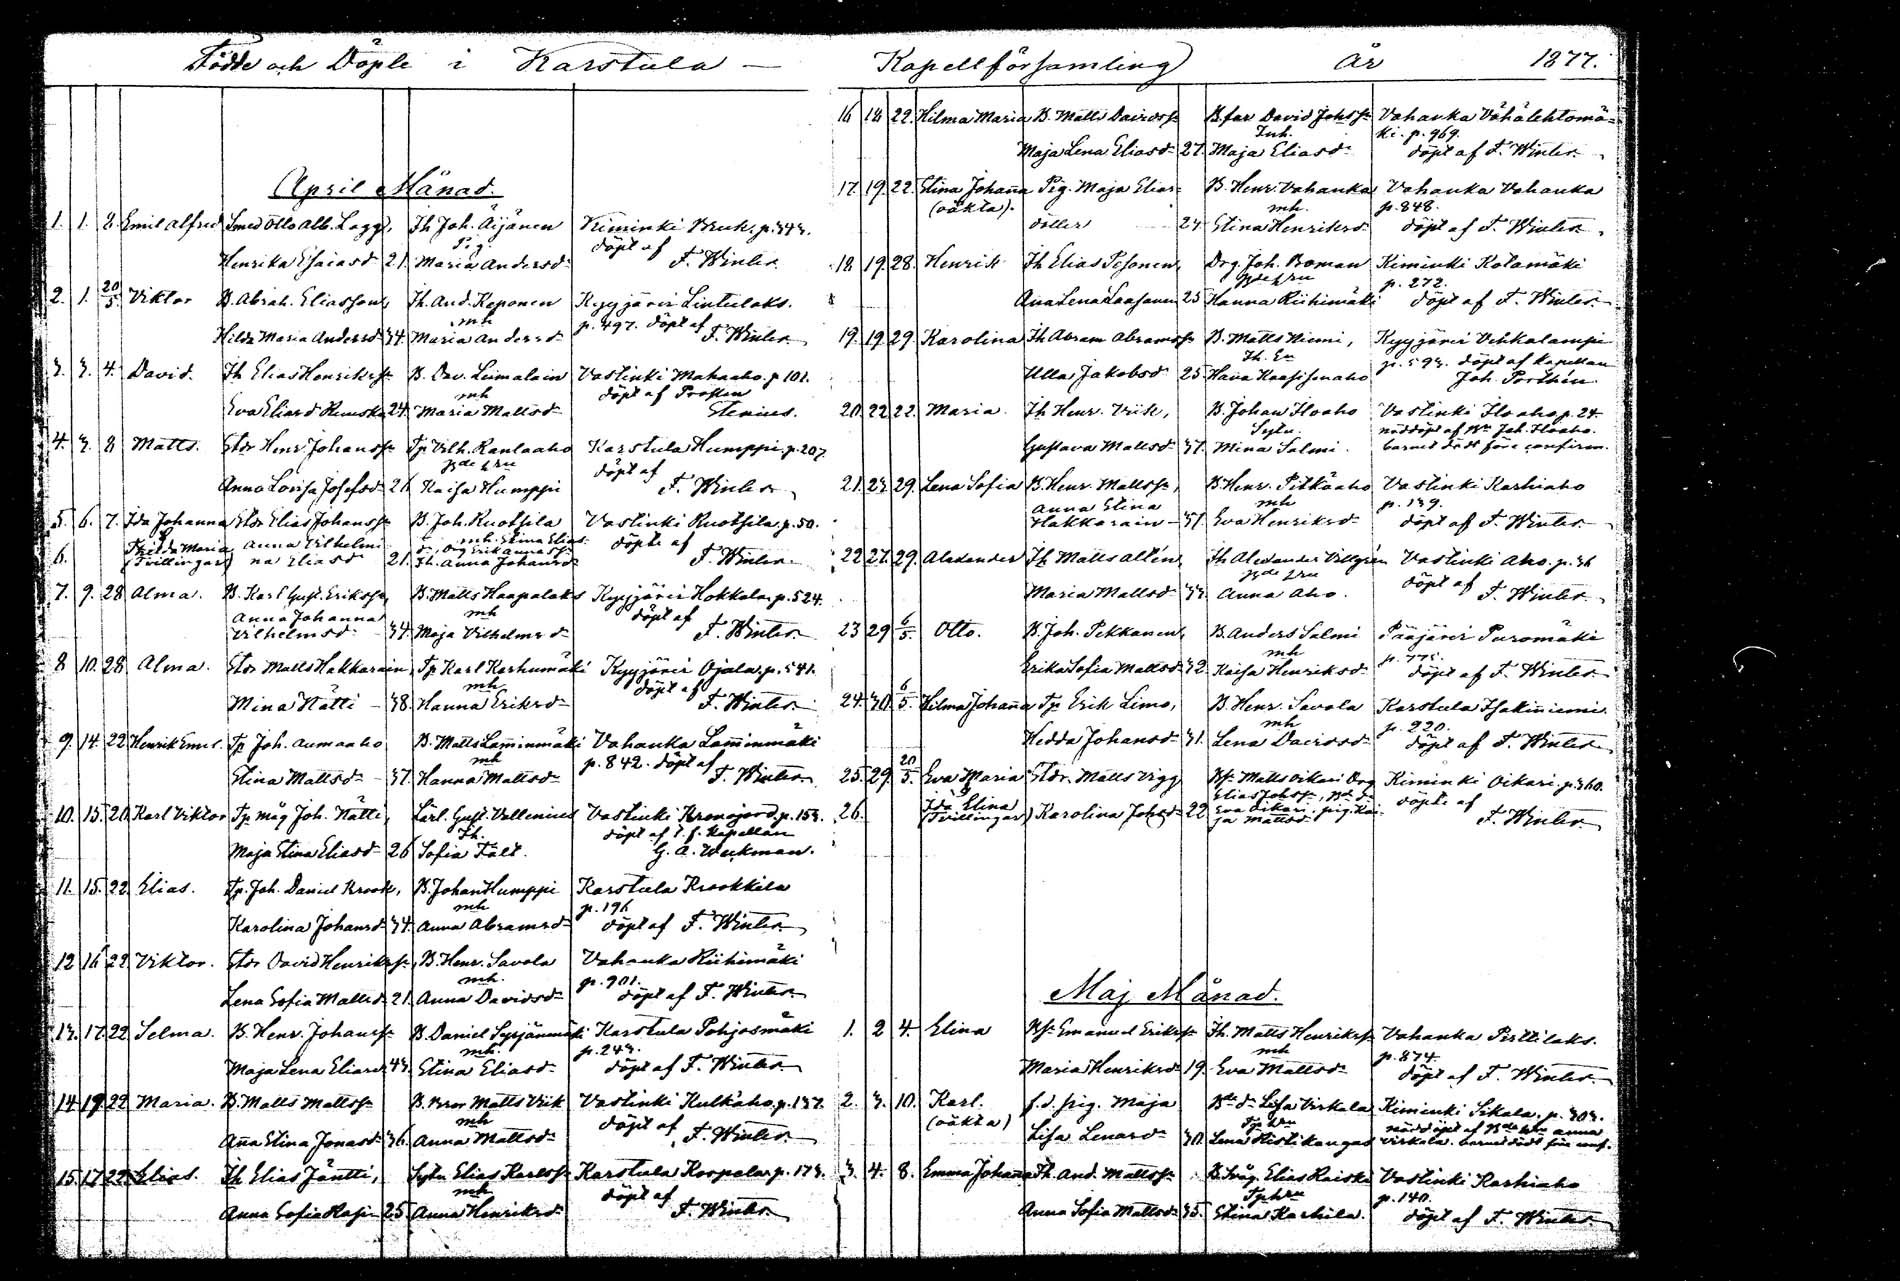 Födde och Döpte i Karstula — Kapellförsamling År 1877.
April Månad.
1. 1. 2. Emil Alfred Smed Otto Alb. Lagg, Ih Joh. Äijänen Kiminki Bruk. p. 343.
Pig. döpt af
Henrika Esaiasd 21. Maria Andersd F. Winter.
2. 1. 20/5. Viktor B. Abrah. Eliasson, Ih. And. Keponen Kyyjärvi Lintulaks.
mh p. 497. döpt af
Hilda Maria Andersd 34. Maria Andersd F. Winter
3. 3. 4. David. Ih Elias Henrikss B. Dav. Leimalain Vastinki Mahaaho. p 101.
mh döpt af Prosten
Eva Eliasd 24. Maria Mattsd Stenius.
4. 3. 8 Matts. Stdr Henr Johanss Tp Vilh. Rantaaho Karstula Humppi. p. 207
döpt af
Anna Lovisa Josefsd 26 Kaisa Humppi F. Winter
5. 6. 7. Ida Johanna Stdr Elias Johanss B. Joh. Ruotsila Vastinki Ruotsila p. 50.
mh. Stina Elias döpte af
6. Maria Anna Vilhelmi
(Tvillingar) na Eliasd 21. Ih. Anna Johansd F. Winter
7. 9. 28 Alma. B. Karl Gust. Erikss, B. Matts Haapalaks Kyyjärvi Hokkala p. 524.
Anna Johanna mh döpt af
Vilhelmsd 34. Maja Vilhelmsd F. Winter
8 10. 28 Alma. Stdr Matts Hakkarain, Tp Karl Karhumäki Kyyjärvi Ojala p. 541.
mh döpt af
Mina Nätti — 38. Hanna Eriksd F. Winter
9. 14. 22 Henrik Emil. Tp Joh. Aumaaho B. Matts Lamminmäki Vahanka Lamminmäki
mh p. 842. döpt af
Stina Mattsd 37. Hanna Mattsd F. Winter
10. 15. 20 Karl Viktor Tp. måg Joh. Nätti, Lärl. Gust. Vallenius Vastinki Kronojord p. 153.
Ih. döpt af t. f. Kapellan
Maja Stina Eliasd 26 Sofia Fält. G. A. Weckman.
11. 15. 22. Elias. Tp. Joh. Daniel Krook, B. Johan Humppi Karstula Krookkila
mh p. 196
Karolina Johansd 34. Anna Abramsd döpt af F. Winter
12 16 22 Viktor. Stdr David Henrikss, B. Henr. Savola Vahanka Riihimäki
mh. p. 901.
Lena Sofia Mattsd 21. Anna Davidsd döpt af F. Winter
13. 17. 22 Selma. B. Henr. Johanss B. Daniel Syrjänmäki Karstula Pohjosmäki
mh. p. 243.
Maja Lena Eliasd 43. Stina Eliasd döpt af F. Winter
14 19 22 Maria. B. Matts Mattss B. Bror Matts Urik Vastinki Kulkaho. p. 137.
mh döpt af
Anna Stina Jonasd 36. Anna Mattsd F. Winter
15. 17 22 Elias. Ih Elias Jäntti, Sytn Elias Karlss Karstula Koopala p. 173.
mh döpt af
Anna Sofia 25. Anna Henriksd F. Winter
16 18 22. Hilma Maria B. Matts Davidss B. far David Johss Vahanka Vähälehtomä-
Inh. ki. p. 969.
Maja Lena Eliasd 27. Maja Eliasd döpt af F. Winter
17. 19. 22. Stina Johanna Pig. Maja Elias- B. Henr. Vahanka Vahanka Vahanka
(oäkta). mh. p. 848.
dotter 24. Stina Henriksd döpt af F. Winter
18 19. 28. Henrik Ih Elias Pesonen, Drg. Joh. Boman Kiminki Kotamäki
p. 272.
Anna Lena Laasanen 25 Hanna Riihimäki döpt af F. Winter
19. 19. 29. Karolina Ih Abram Abramss B. Matts Niemi, Kyyjärvi Verkalampi
p. 593. döpt af Kapellan
Ulla Jakobsd 25 Joh. Porthén
20 22 22. Maria. Ih Henr. Urik, B. Johan Iloaho Vastinki Iloaho p. 24.
Sytn. nöddöpt af Bn Joh. Iloaho.
Gustava Mattsd 37. Mina Salmi. barnet dödt före confirm.
21. 23. 29. Lena Sofia B. Henr. Mattss, B. Henr. Pitkäaho Vastinki Karhiaho
Anna Stina mh p. 139.
Hakkarain — 37. Eva Henriksd döpt af F. Winter
22 27. 29. Alexander Ih Matts Altén, Ih Alexander Villgrén Vastinki Aho. p. 36
döpt af
Maria Mattsd 33. Anna Aho. F. Winter
23 29 6/5 Otto. B. Joh. Pekkanen, B. Anders Salmi Pääjärvi Puromäki
mh p. 775.
Erika Sofia Mattsd 32. Kaisa Henriksd döpt af F. Winter
24. 30. 6/5. Hilma Johanna Tp Erik Limo, B. Henr. Savola Karstula Isakinniemi
mh p. 220.
Hedda Johansd 31. Lena Davidsd döpt af F. Winter
25. 29. 20/5. Eva Maria Stdr. Matts Vigg Matts Oikari Drg Kiminki Oikari. p. 360.
Elias Johss, döpte af
26. Ida Elina
(Tvillingar) Karolina Johsd 22 Eva Oikari, pig. Kai-
sa Mattsd F. Winter
Maj Månad.
1. 2 4. Elina Bs Emanuel Erikss Ih. Matts Henrikss Vahanka Perttilaks.
mh p. 874
Maria Henriksd 19. Eva Mattsd döpt af F. Winter
2. 3. 10. Karl. f. d. pig. Maja Lisa Virkala Kiminki Sikala. p. 303.
(oäkta) nöddöpt af Anna
Lisa Lenasd 30. Lena Ristikangas Virkala. barnet dödt före conf.
3. 4. 8. Emma Johanna Ih. And. Mattss B. Svåg. Elias Raiski Vastinki Karhiaho
p. 140.
Anna Sofia Mattsd 35. Stina Karhila. döpt af F. Winter